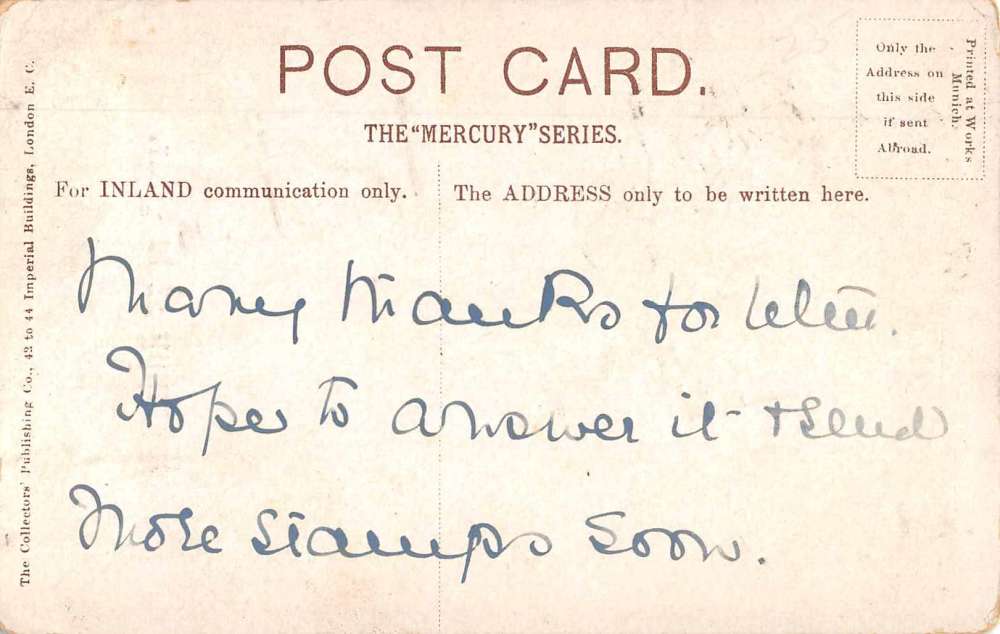 POST CARD.
THE "MERCURY" SERIES.
For INLAND communication only.
The ADDRESS only to be written here.
Only the
Address on
this side
if sent
Abroad.
Printed at Works
Munich.
The Collectors' Publishing Co., 42 to 44 Imperial Buildings, London E. C.
Many thanks for letter.
Hope to answer it & send
more stamps soon.